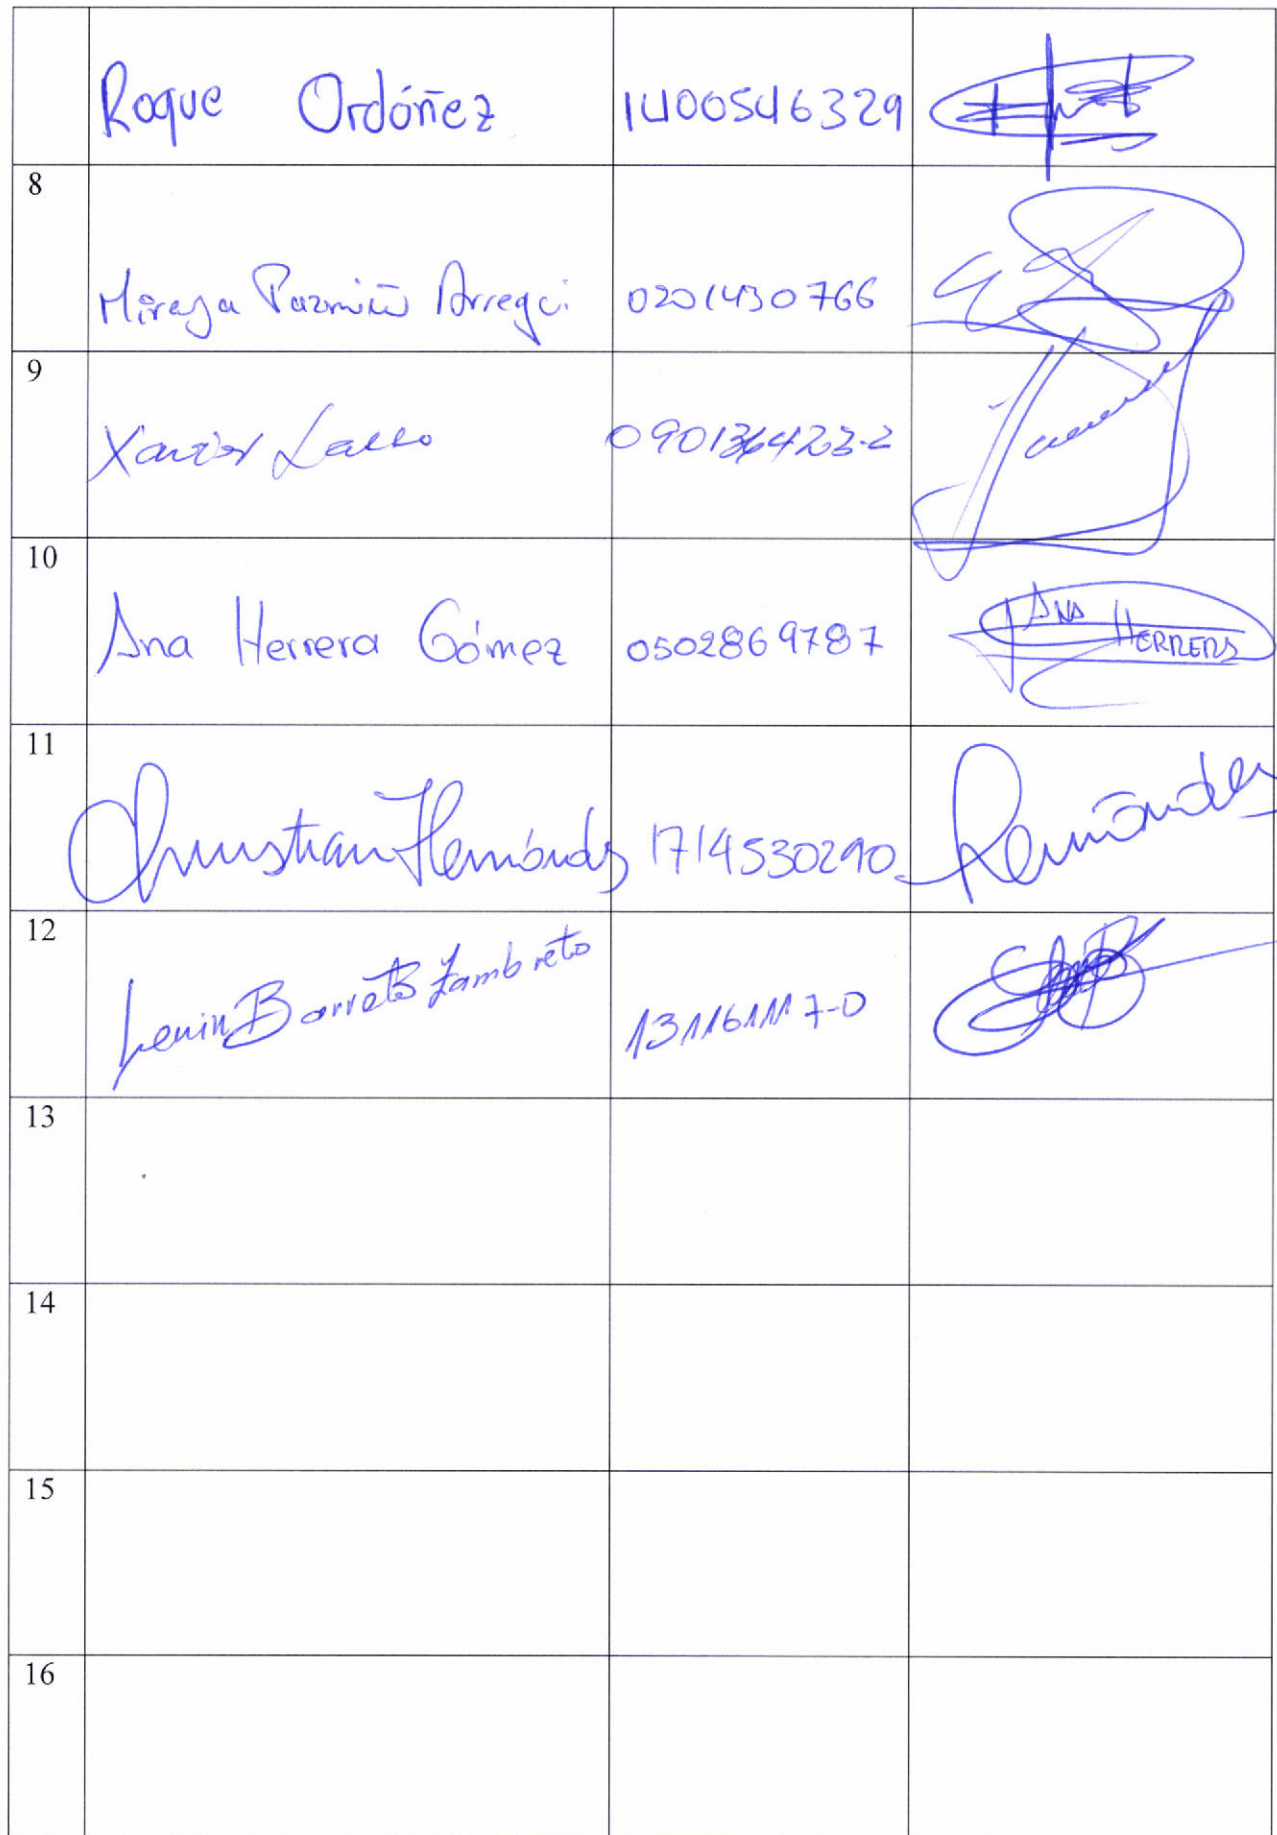 Roque Ordóñez 1400546329
8
Mireya Pazmiño Arregui 0201430766
9
Xavier Lasso 090136423-2
10
Ana Herrera Gómez 0502869787 ANA HERRERA
11
Christian Hernández 1714530290 Hernández
12
Lenin Barreto Zambrato 131161117-0
13
14
15
16